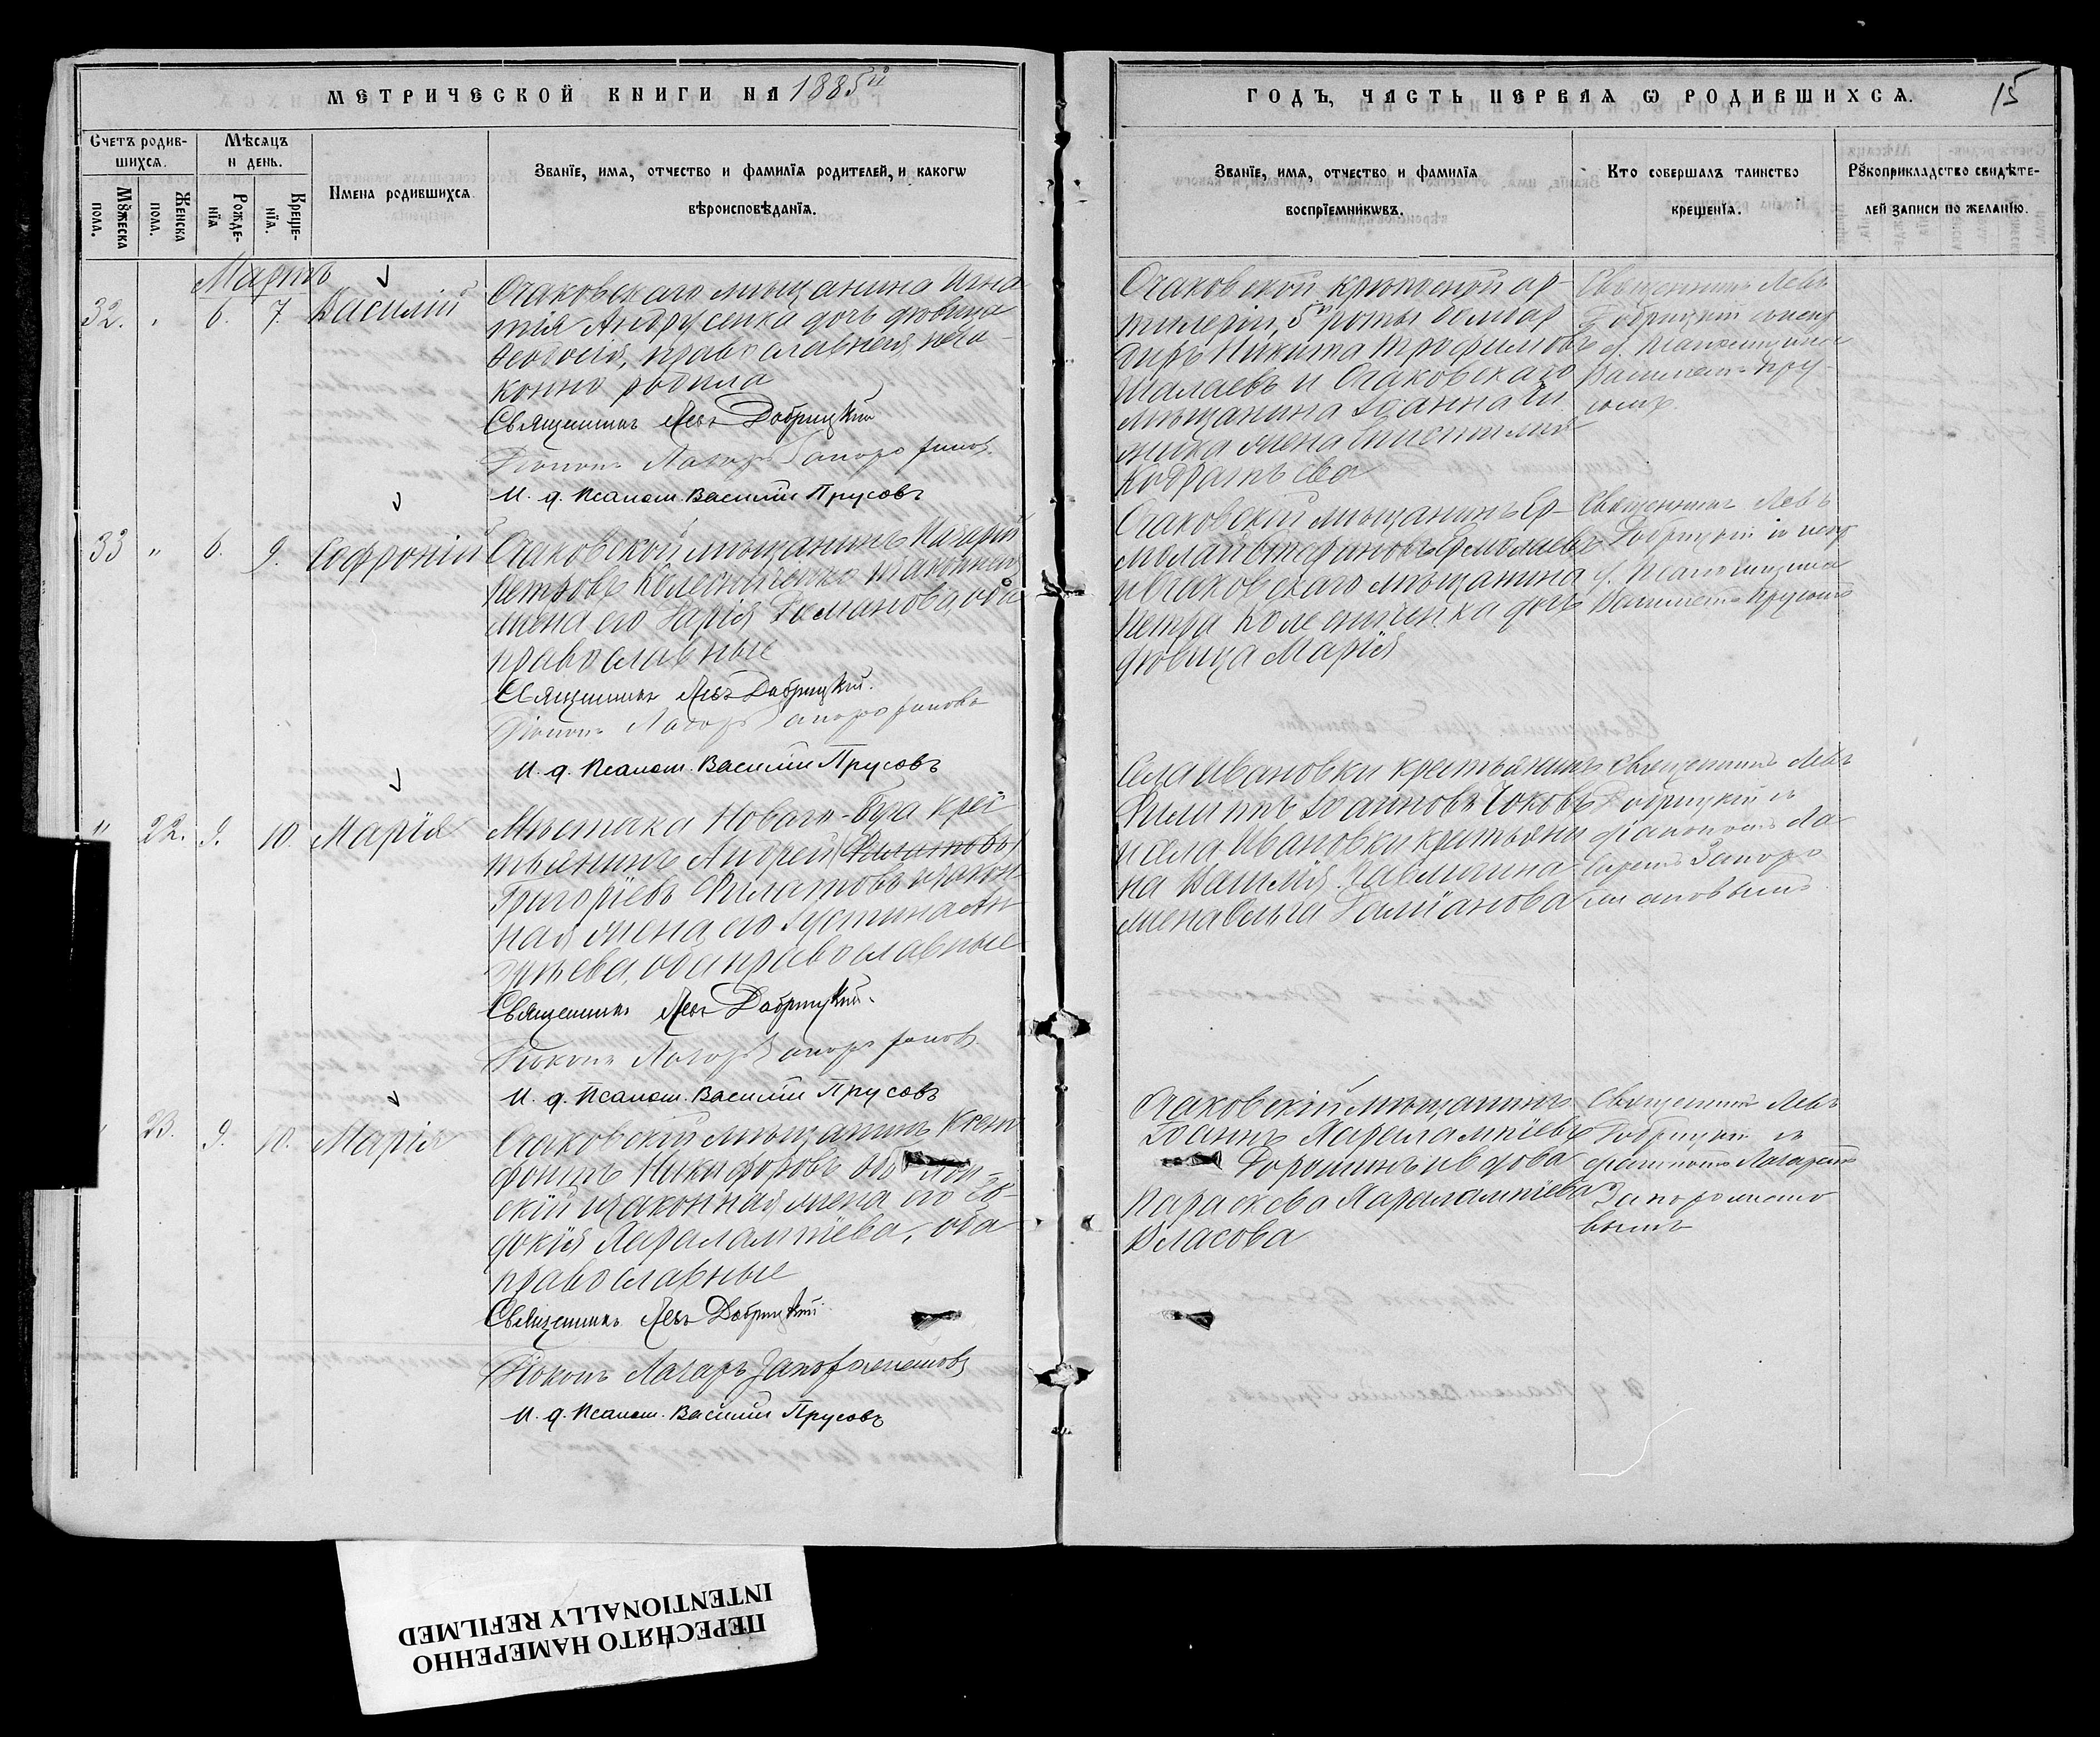 МЕТРИЧЕСКОЙ КНИГИ НА 1885й
ГОДЪ, ЧАСТЬ ПЕРВАЯ Ѡ РОДИВШИХСЯ.
15
Счетъ родив-
шихся.
Мѣсяцъ
и день.
Имена родившихся
Званіе, имя, отчество и фамилія родителей, и какогѡ
вѣроисповѣданія.
Мꙋжеска
пола.
Женска
пола.
Рожде-
нія
Креще-
нія.
Званіе, имя, отчество и фамилія
воспріемникѡвъ.
Кто совершалъ таинство
крещенія.
Рꙋкоприкладство свидѣте-
лей записи по желанію.
Мартъ
32. 6. 7. Василій
Очаковскаго мѣщанина Игна
тія Андрусенка дочь дѣвица
Ѳеодосія, православная, неза-
конно родила
Священникъ Левъ Добрицкій
Діаконъ Лазарь
И. д. Псалом. Василій Прусовъ
Очаковской крѣпостной ар-
тилеріи, 5й роты
Никита Трофимовъ
Шалаевъ и Очаковскаго
мѣщанина Іоанна
жена
Кодратьева
Священникъ Левъ
Добрицкій
д. Псаломщика
Василіемъ Пру-
33 " 6. 9. Софроній
Очаковской мѣщанинъ
Петровъ Колесниченко и законная
жена его Дарія Романова оба
православные
Священникъ Левъ Добрицкій.
Діаконъ Лазарь
И. д. Псалом. Василій Прусовъ
Очаковскій мѣщанинъ Ер-
молай Ермолаевъ
и Очаковскаго мѣщанина
Петра Колесниченка дочь
дѣвица Марія
Священникъ Левъ
Добрицкій и испр.
д. Псаломщика
Василіемъ Прусовымъ
" 22. 9. 10. Марія
Мѣстечка Новаго-Буга крес
тьянинъ Андрей
Григоріевъ Филатовъ и закон
ная жена его Іустина Ан
дреева, оба православные
Священникъ Левъ Добрицкій.
Діаконъ Лазарь
И. д. Псалом. Василій Прусовъ
Села Ивановки крестьянинъ
Филиппъ Іоанновъ
и села Ивановки крестьяни
на Василія
жена Ольга Даміанова
Священникъ Левъ
Добрицкій и
діакономъ Ла-
заремъ Запоро
23. 9. 10. Марія
Очаковскій мѣщанинъ Ксен
фонтъ Никифоровъ
скій и законная жена его Ев-
докія Харалампіева, оба
православные
Священникъ Левъ Добрицкій
Діаконъ Лазарь
И. д. Псалом. Василій Прусовъ
Очаковскій мѣщанинъ
Іоаннъ Харалампіевъ
Дорошинъ и вдова
Параскева Харалампіева
Власова
Священникъ Левъ
Добрицкій и
діакономъ Лазаремъ
вымъ
ПЕРЕСНЯТО НАМЕРЕННО
INTENTIONALLY REFILMED